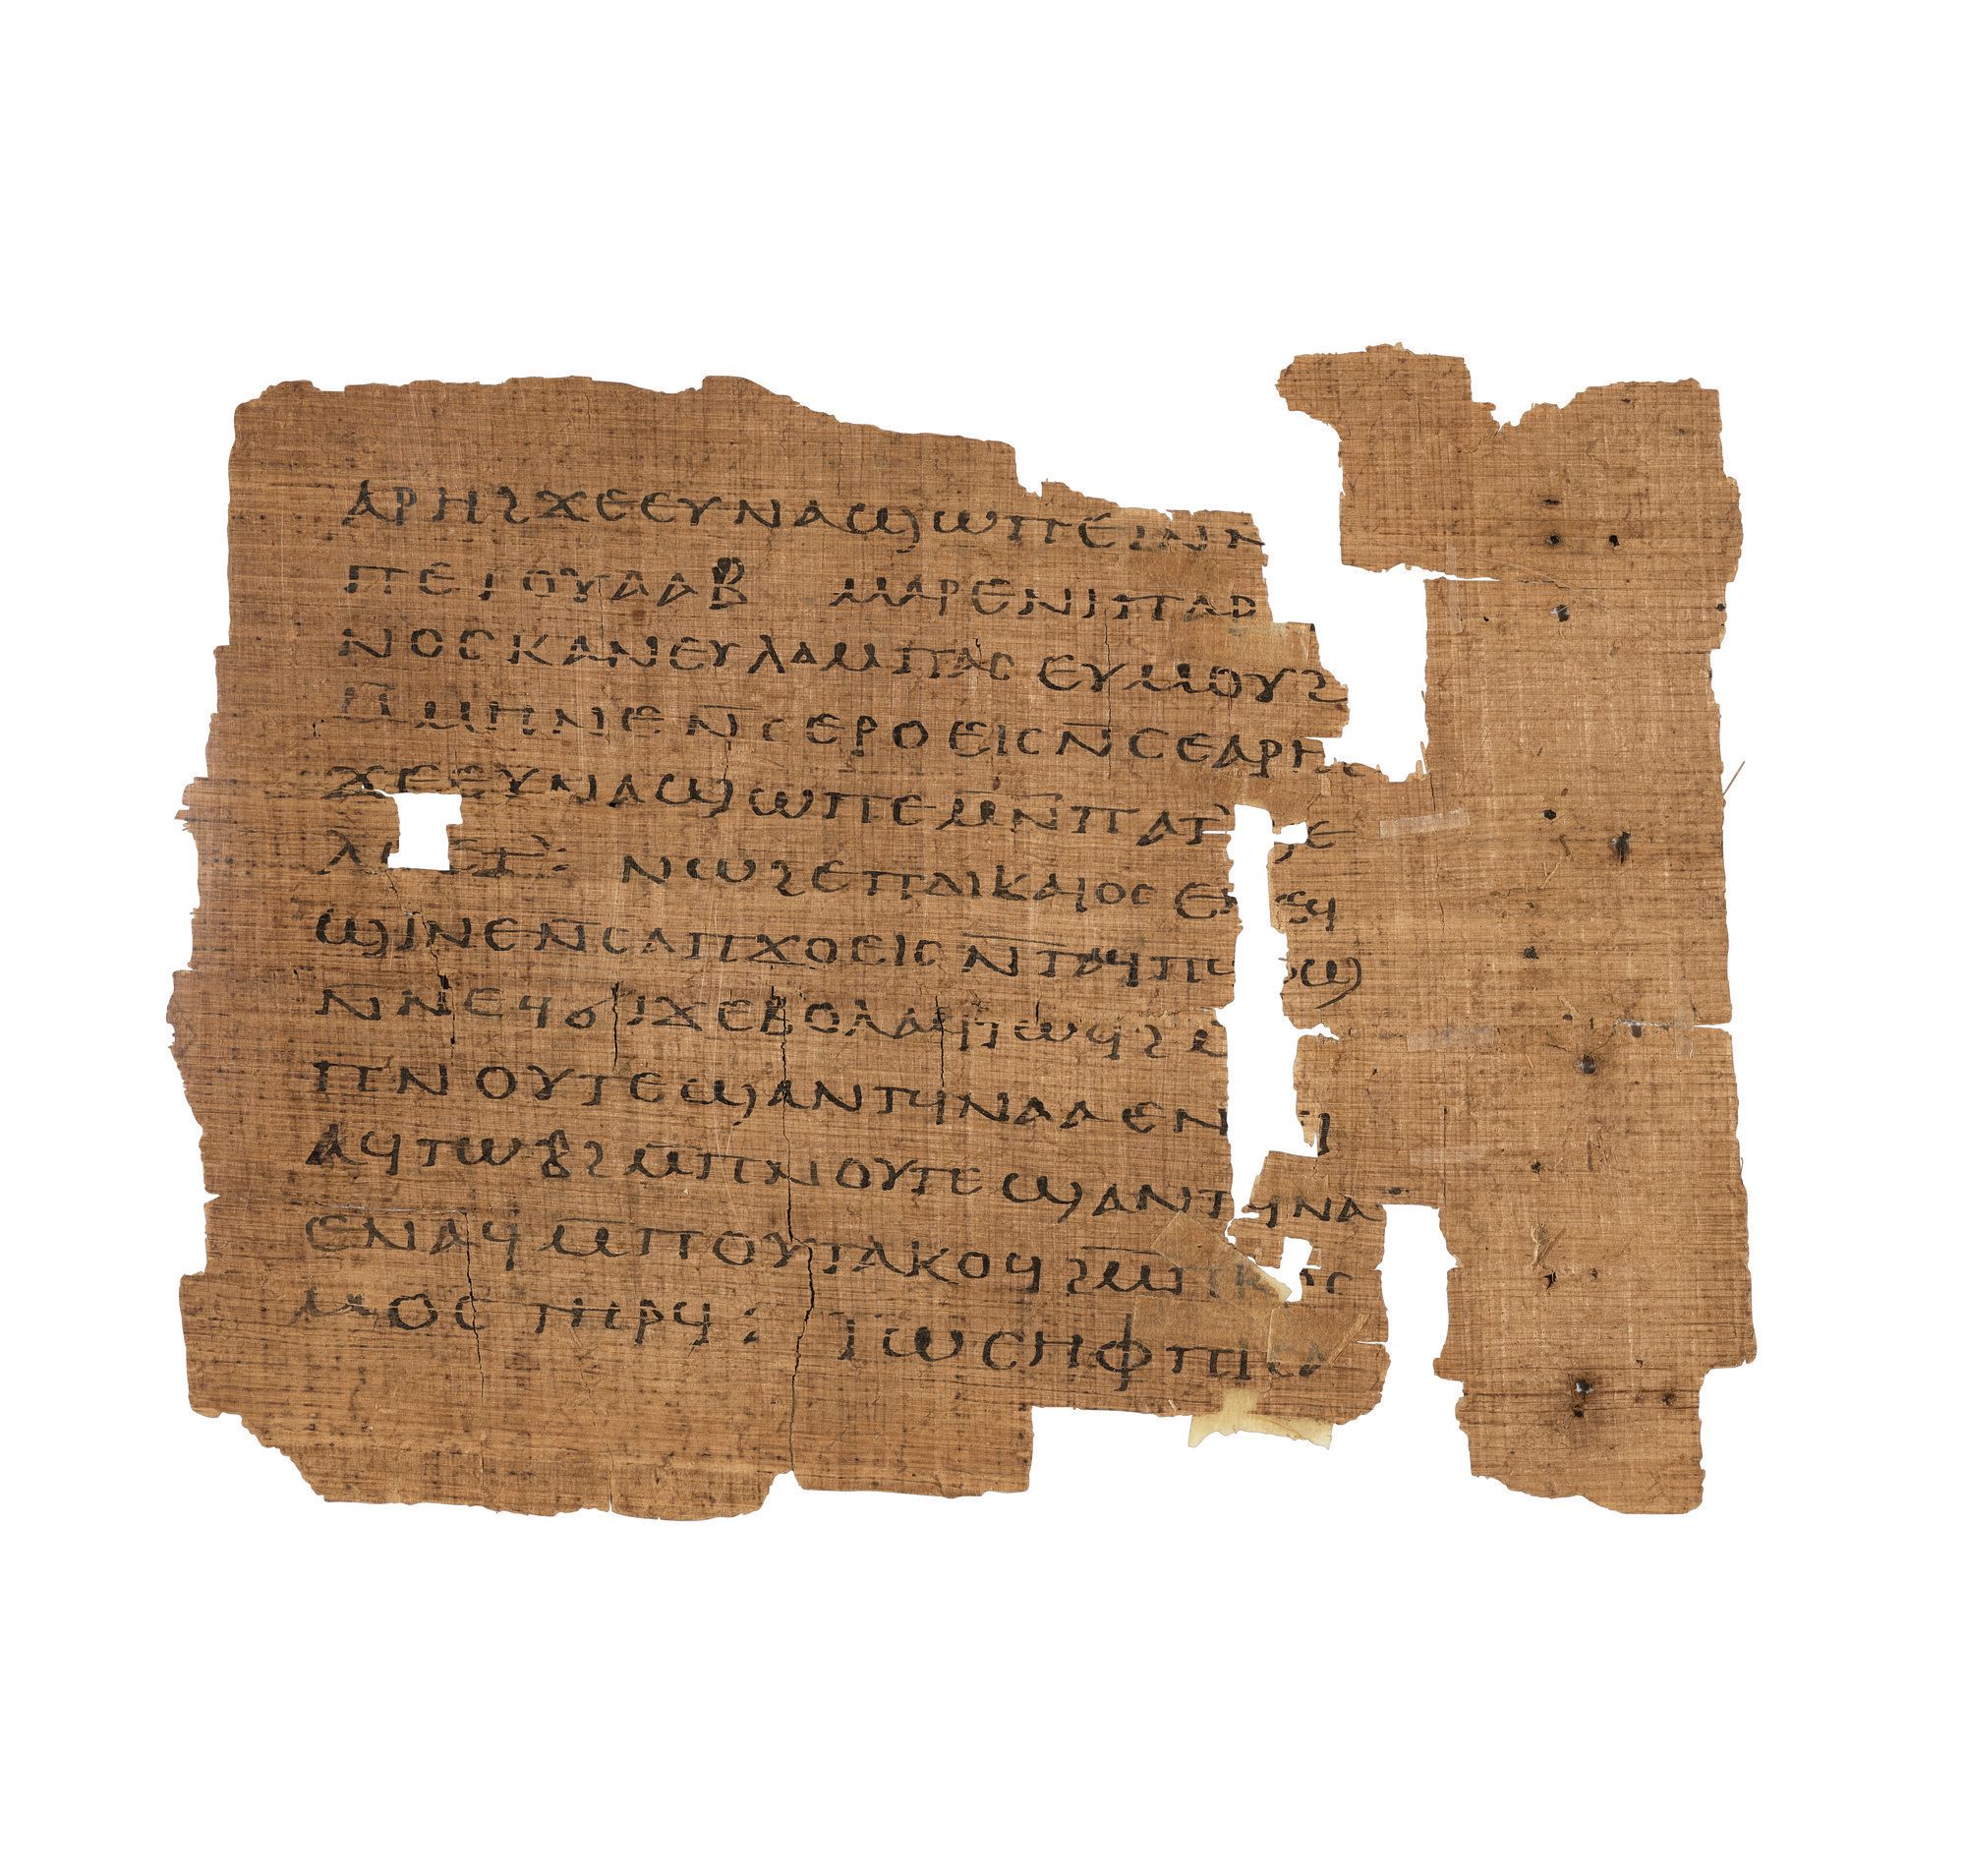 ⲁⲣⲏϩϫⲉⲉⲩⲛⲁϣⲱⲡⲉⲙⲛ
ⲡⲉⲧⲟⲩⲁⲁⲃ ⲙⲁⲣⲉⲛⲓⲡⲁⲣ
ⲛⲟⲥⲕⲁⲛⲉⲩⲗⲁⲙⲡⲁⲥⲉⲩⲙⲟⲩϩ
ⲙⲏⲛⲉⲛ̄ⲥⲉⲣⲟⲉⲓⲥⲛ̄ⲥⲉⲁⲣⲏϩ
ϫⲉⲉⲩⲛⲁϣⲱⲡⲉⲙⲛ̄ⲡⲁⲧϣⲉ
ⲛⲱϩⲉⲡⲇⲓⲕⲁⲓⲟⲥ
ϣⲓⲛⲉⲛ̄ⲥⲁⲡϫⲟⲉⲓⲥⲛ̄ⲧⲁϥⲡⲱⲣϣ
ⲛ̄ⲛⲉϥϭⲓϫⲉⲃⲟⲗⲁϥⲧⲱⲃϩⲙ̄
ⲡⲛⲟⲩⲧⲉϣⲁⲛⲧϥⲛⲁⲁⲉⲛⲁϥ
ⲁϥⲧⲱⲃϩⲙ̄ⲡⲛⲟⲩⲧⲉϣⲁⲛⲧϥⲛⲁ
ⲉⲛⲁϥⲙ̄ⲡⲟⲩⲧⲁⲕⲟϥϩⲙ̄ⲡⲕⲟⲥ
ⲙⲟⲥⲧⲏⲣϥ: ⲓⲱⲥⲏⲫⲡⲓⲥⲁ